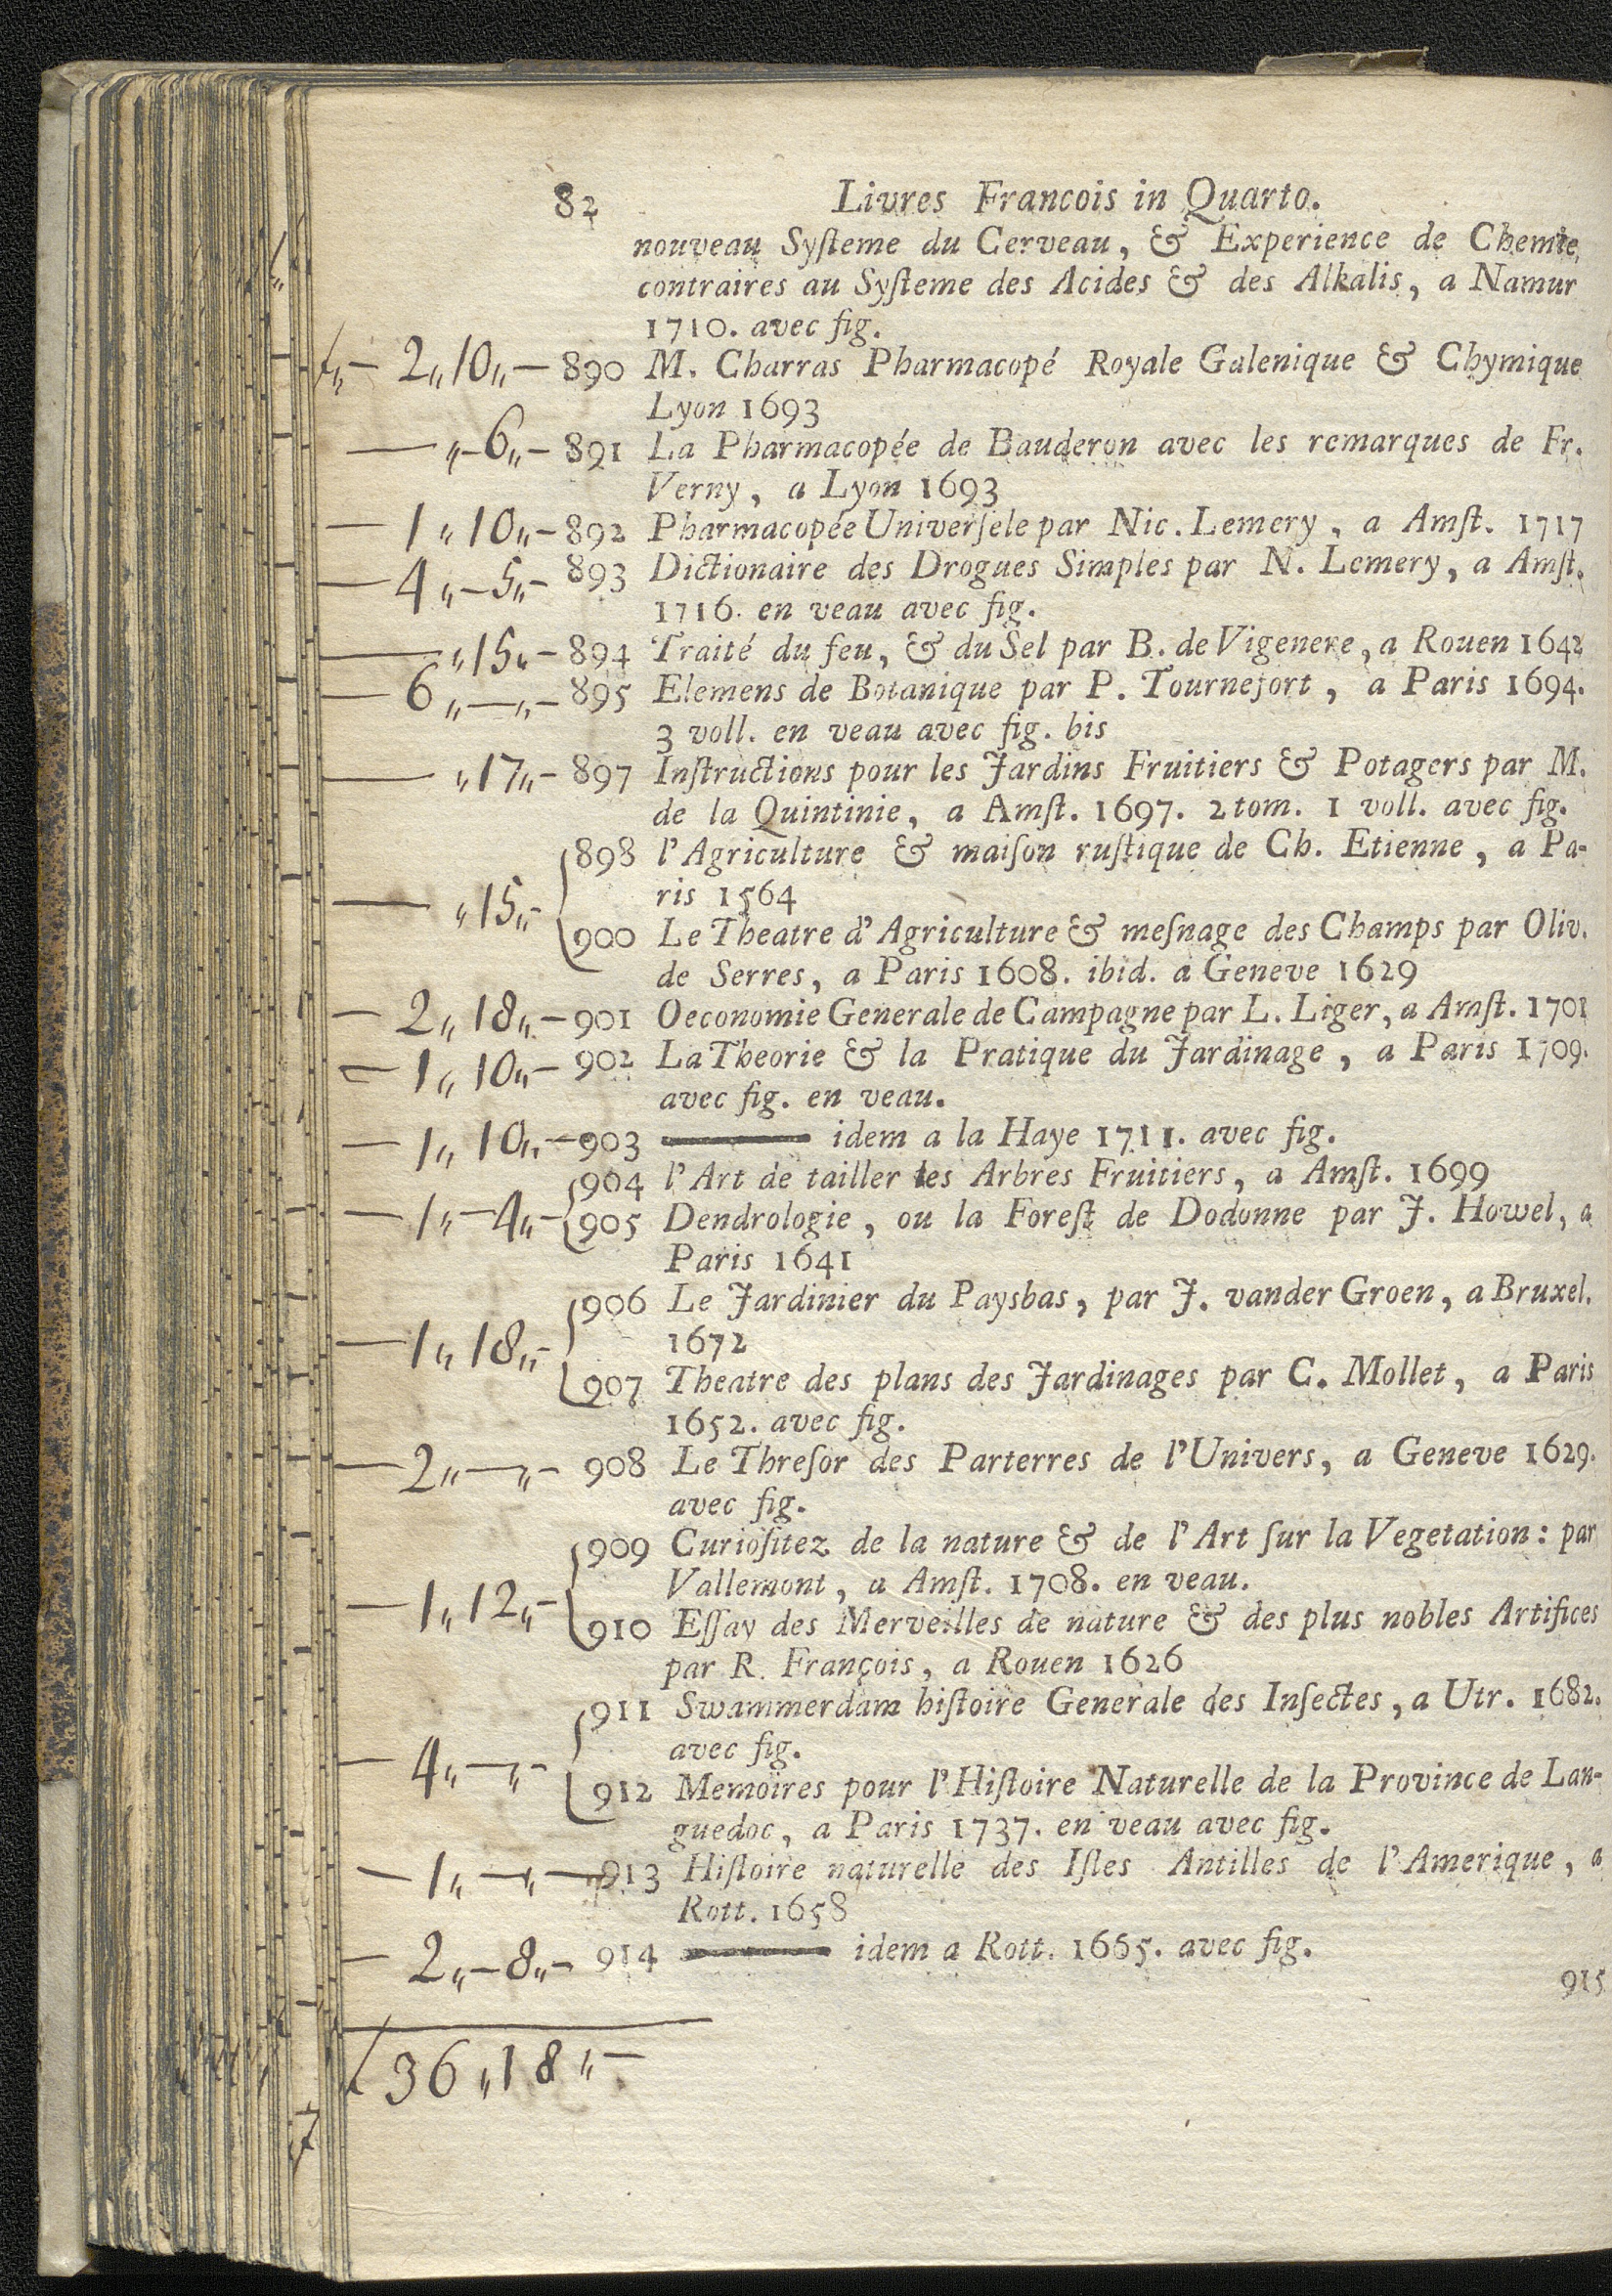 82 Livres Francois in Quarto.
nouveau Syſteme du Cerveau, & Experience de Chemie,
contraires au Syſteme des Acides & des Alkalis, a Namur
1710. avec fig.
2„10„— 890 M. Charras Pharmacopé Royale Galenique & Chymique
Lyon 1693
— „—6„— 891 La Pharmacopée de Bauderon avec les remarques de Fr.
Verny, a Lyon 1693
— 1„10„— 892 Pharmacopée Univerſele par Nic. Lemery, a Amſt. 1717
— 4„—5„— 893 Dictionaire des Drogues Simples par N. Lemery, a Amſt.
1716. en veau avec fig.
— „15„— 894 Traité du feu, & du Sel par B. de Vigenere, a Rouen 1642
— 6„—„— 895 Elemens de Botanique par P. Tournefort, a Paris 1694.
3 voll. en veau avec fig. bis
— „17„— 897 Inſtructions pour les Jardins Fruitiers & Potagers par M.
de la Quintinie, a Amſt. 1697. 2 tom. 1 voll. avec fig.
898 l'Agriculture & maiſon ruſtique de Ch. Etienne, a Pa-
ris 1564
— „15„—
900 Le Theatre d'Agriculture & meſnage des Champs par Oliv.
de Serres, a Paris 1608. ibid. a Geneve 1629
— 2„18„— 901 Oeconomie Generale de Campagne par L. Liger, a Amſt. 1701
— 1„10„— 902 La Theorie & la Pratique du Jardinage, a Paris 1709.
avec fig. en veau.
— 1„10„— 903 ——— idem a la Haye 1711. avec fig.
904 l'Art de tailler les Arbres Fruitiers, a Amſt. 1699
— 1„—4„— 905 Dendrologie, ou la Foreſt de Dodonne par J. Howel, a
Paris 1641
906 Le Jardinier du Paysbas, par J. vander Groen, a Bruxel.
1672
— 1„18„—
907 Theatre des plans des Jardinages par C. Mollet, a Paris
1652. avec fig.
— 2„—„— 908 Le Threſor des Parterres de l'Univers, a Geneve 1629.
avec fig.
909 Curioſitez de la nature & de l'Art ſur la Vegetation: par
Vallemont, a Amſt. 1708. en veau.
— 1„12„—
910 Eſſay des Merveilles de nature & des plus nobles Artifices
par R. François, a Rouen 1626
911 Swammerdam hiſtoire Generale des Inſectes, a Utr. 1682.
avec fig.
— 4„—„—
912 Memoires pour l'Hiſtoire Naturelle de la Province de Lan-
guedoc, a Paris 1737. en veau avec fig.
— 1„—„— 913 Hiſtoire naturelle des Iſles Antilles de l'Amerique, a
Rott. 1658
— 2„—8„— 914 ——— idem a Rott. 1665. avec fig.
915
36„18„—